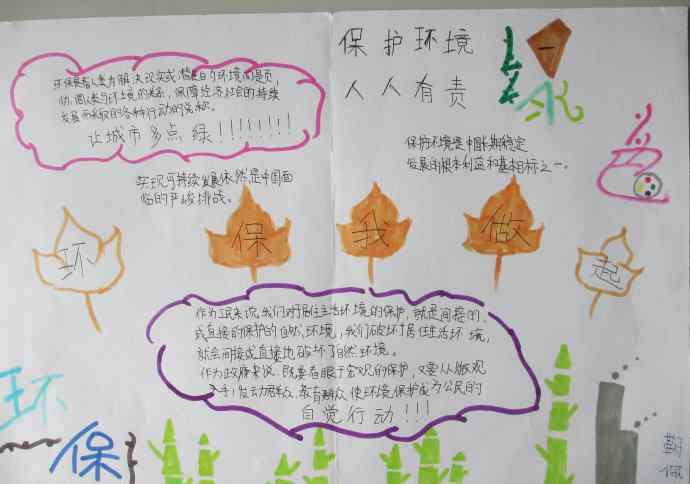 保护环境
人人有责
环保是指人类为解决现实或潜在的环境问题,
协调人类与环境的关系,保障经济社会的持续
发展而采取的各种行动的总称。
让城市多点绿!!!!!!!!
保护环境是中国长期稳定
发展的根本利益和基本目标之一。
实现可持续发展依然是中国面
临的严峻挑战。
环 保 我 做 起
作为公民来说,我们对于居住生活环境的保护,就是间接的
或直接的保护的自然环境,我们破坏了居住生活环境,
就会间接或直接地破坏了自然环境。
作为政府来说,既要着眼于宏观的保护,又要从微观
入手,发动群众、教育群众,使环境保护成为公民的
自觉行动!!!
环
保